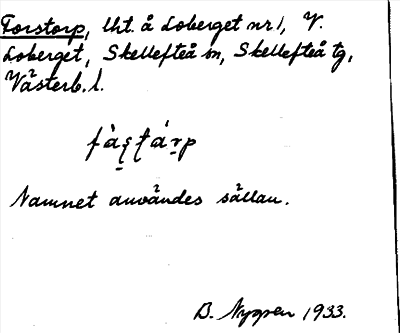 Forstorp, lht. å Loberget nr 1, V.
Loberget, Skellefteå sn, Skellefteå tg,
Västerb. l.
Namnet användes sällan.
B. Nygren 1933.